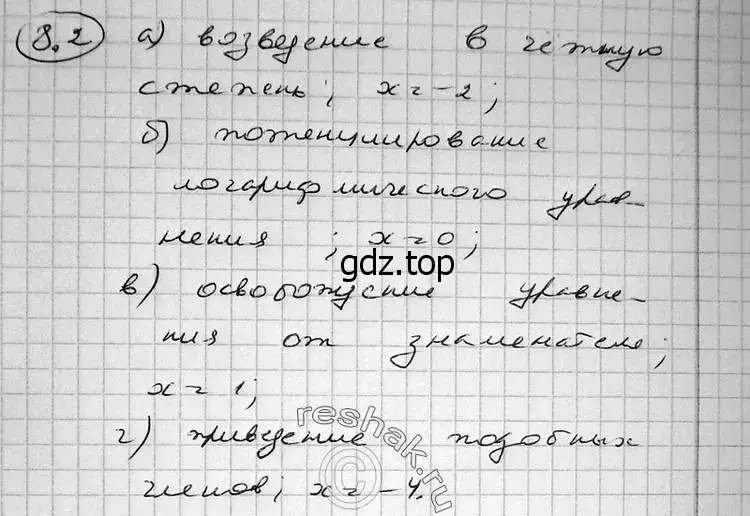 8.2 а) возведение в четную
степень; x = -2;
б) потенциирование
логарифмического урав-
нения ; x = 0;
gdz.top
в) освобождение уравне-
ния от знаменателя;
x = 1;
reshak.ru
г) приведение подобных
©
членов; x = -4.